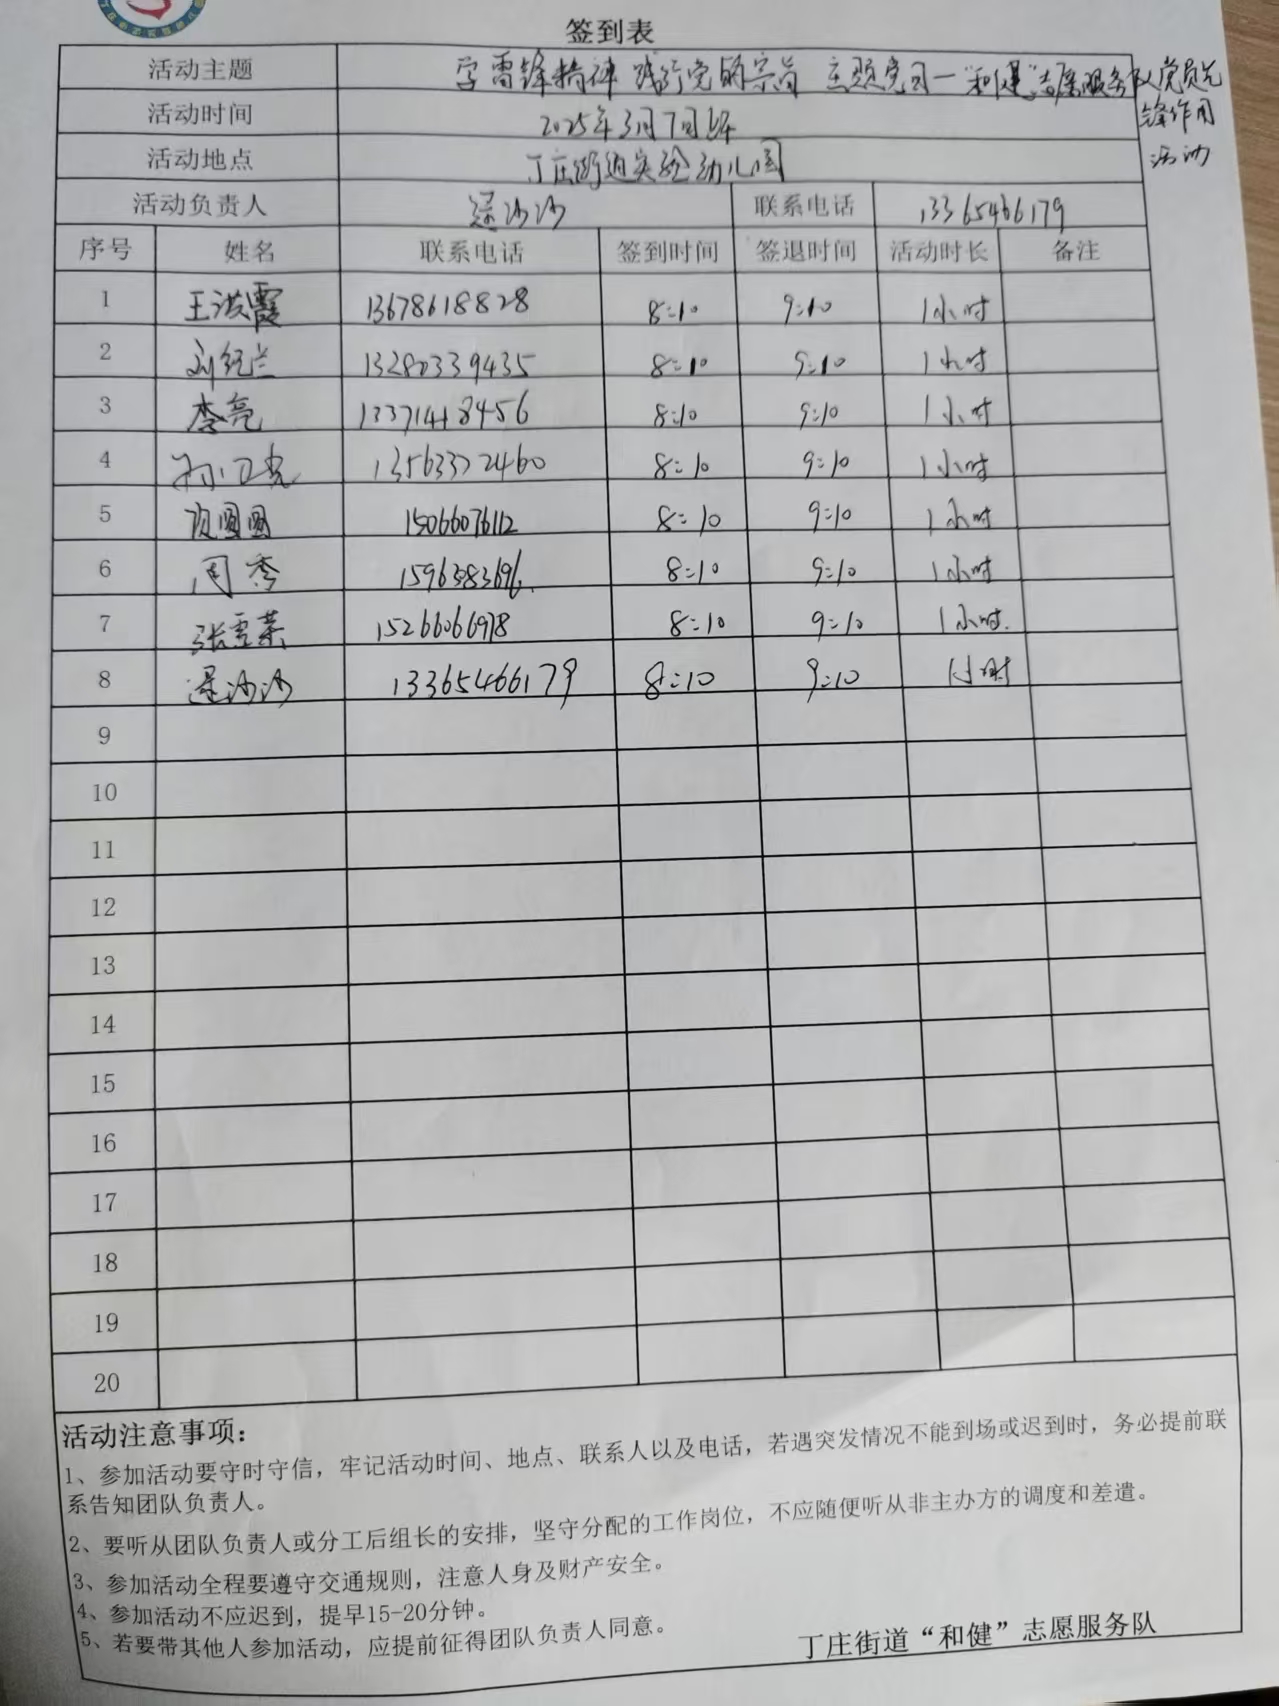 签到表
活动主题 学雷锋精神 践行党的宗旨 主题党日一"和健"志愿服务队党员先
锋作用
活动
活动时间 2025年3月7日上午
活动地点 丁庄街道实验幼儿园
活动负责人 沙沙 联系电话 13365466179
序号 姓名 联系电话 签到时间 签退时间 活动时长 备注
1 王洪霞 13678618828 8:10 9:10 1小时
2 刘红兰 13280339435 8:10 9:10 1小时
3 李亮 13371418456 8:10 9:10 1小时
4 13563372460 8:10 9:10 1小时
5 圆圆 15066076112 8:10 9:10 1小时
6 周秀 8:10 9:10 1小时
7 张雪莱 15266066978 8:10 9:10 1小时.
8 沙沙 13365466179 8:10 9:10 1小时
9
10
11
12
13
14
15
16
17
18
19
20
活动注意事项：
1、参加活动要守时守信，牢记活动时间、地点、联系人以及电话，若遇突发情况不能到场或迟到时，务必提前联
系告知团队负责人。
2、要听从团队负责人或分工后组长的安排，坚守分配的工作岗位，不应随便听从非主办方的调度和差遣。
3、参加活动全程要遵守交通规则，注意人身及财产安全。
4、参加活动不应迟到，提早15-20分钟。
5、若要带其他人参加活动，应提前征得团队负责人同意。
丁庄街道“和健”志愿服务队